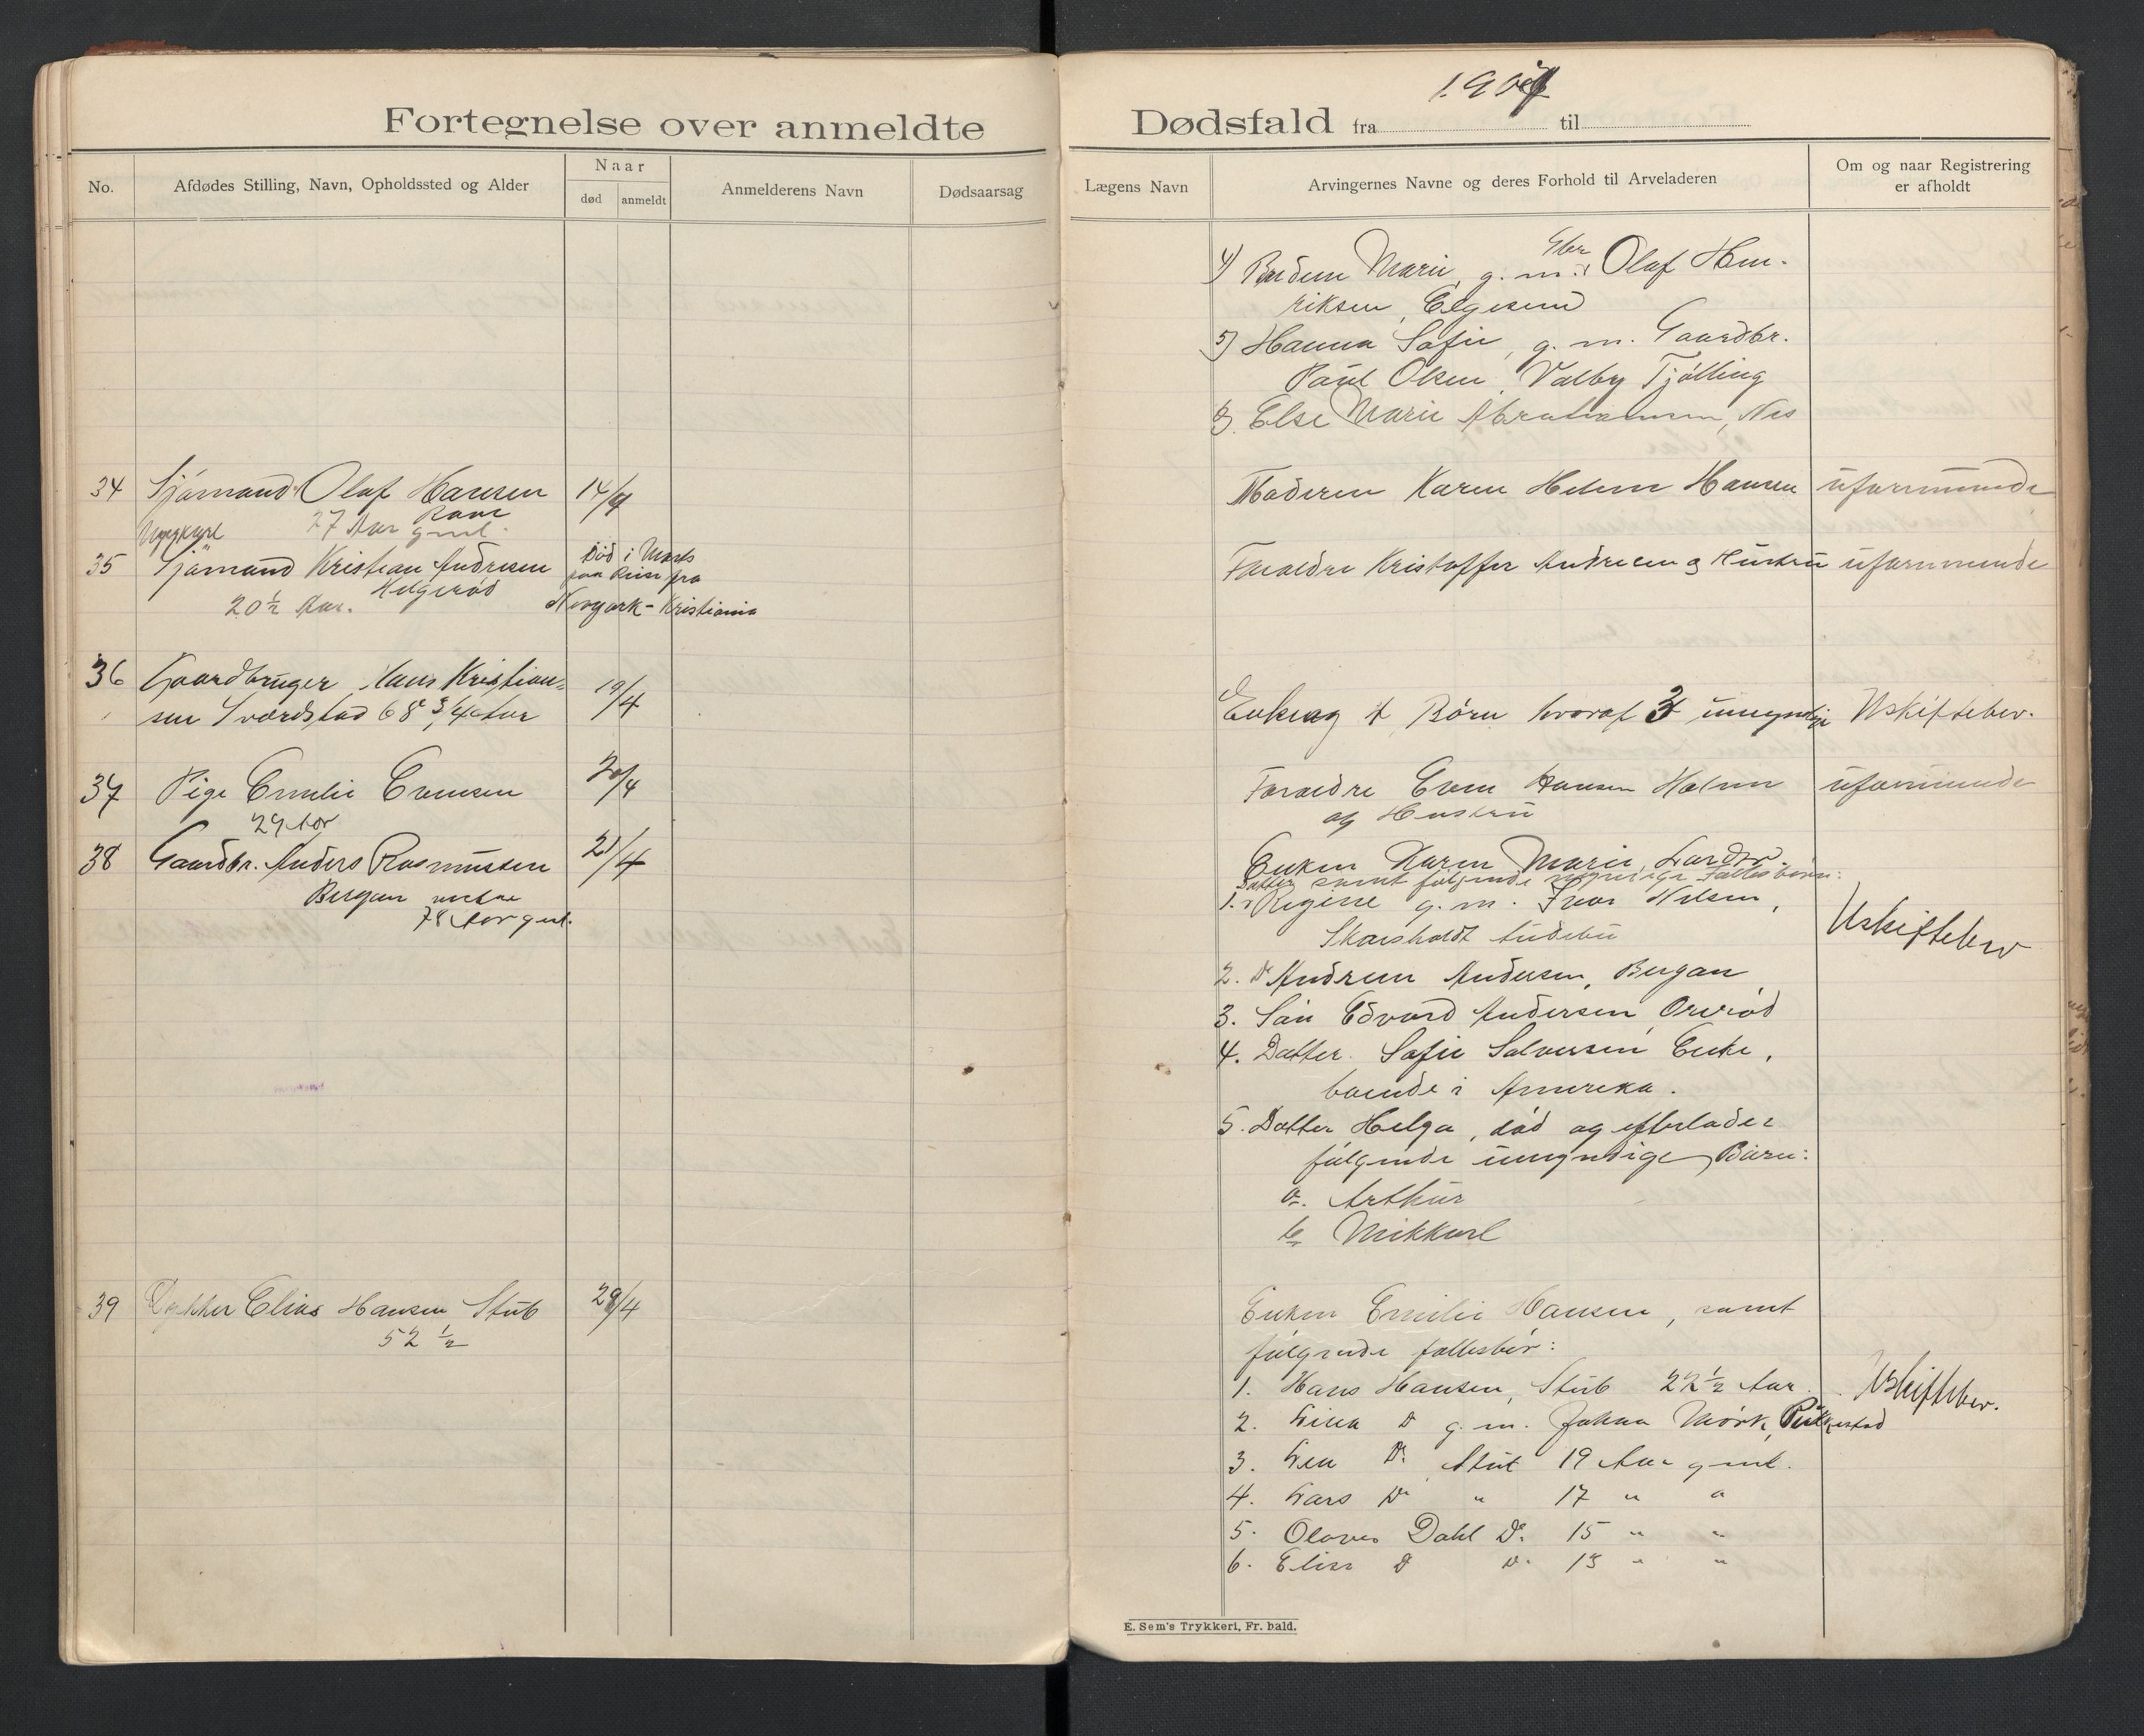 Fortegnelse over anmeldte
No.
Afdødes Stilling, Navn, Opholdssted og Alder
Naar
død
anmeldt
Anmelderens Navn
Dødsaarsag
34 Sjømand Olaf Hansen 14/4
Ravv
27 Aar gml.
35 Sjømand Kristian Andresen
Helgerød
20 ½ Aar.
Død i Marts
paa Reise fra
Newyork - Kristiania
36 Gaardbruger Hans Kristian-
sen Sværdstad 68 3/4 Aar 19/4
37 Pige Emilie Evensen 20/4
29 Aar
38 Gaardbr. Anders Rasmussen 21/4
Bergan nedre
78 Aar gml.
39 Dykker Elias Hansen Stub 29/4
52 ½
1904
Dødsfald fra til
Lægens Navn
Arvingernes Navne og deres Forhold til Arveladeren
Om og naar Registrering
er afholdt
4) Marie, g. m. Gbr Olaf Hen-
riksen, Elgesem
5) Hanna Sofie, g. m. Gaardbr.
Paul Olsen, Valby Tjølling
6) Else Marie Abrahamsen, Nes
Moderen Karen Helene Hansen uformuende
Forældre Kristoffer Andresen og Hustru uformuende
Enke og Børn hvoraf 3 umyndige Uskiftebev.
Forældre Even Hansen Holm uformuende
og Hustru
Enken Karen Marie
samt følgende myndige Fællesbørn:
1. Datter Regine g. m. Iver Nilsen,
Skarsholdt Andebu
Uskiftebev
2. Do Andreas Andersen, Bergan
3. Søn Edvard Andersen Orerød
4. Datter Sofie Salvesen Enke,
boende i Amerika.
5. Datter Helga, død og efterlader
følgende umyndige Børn:
a. Arthur
b. Mikkael
Enken Emilie Hansen, samt
følgende fællesbør:
1. Hans Hansen, Stub 22 ½ Aar. Uskiftebev.
2. Lina Do g. m. Johan Mørk, Pukkestad
3. Do Stub 19 Aar gml.
4. Lars Do " 17 " "
5. Olaves Dahl Do. 15 " "
6. Elise Do Do. 13 " "
E. Sem's Trykkeri, Fr. hald.